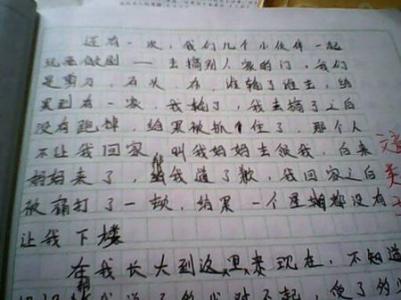 还有一次，我们几个小伙伴一起
玩恶做剧——去搞别人家的门，我们
是剪刀，石头，布，谁输了谁去，结
果到有一次，我输了，我去搞了之后
没有跑掉，结果被抓住了，那个人
不让我回家，叫我妈妈去假我，后来
妈妈来了，帮我道了歉，我回家之后
被痛打了一顿，结果一个星期都没有
让我下楼
在我长大到这里来现在，不知道